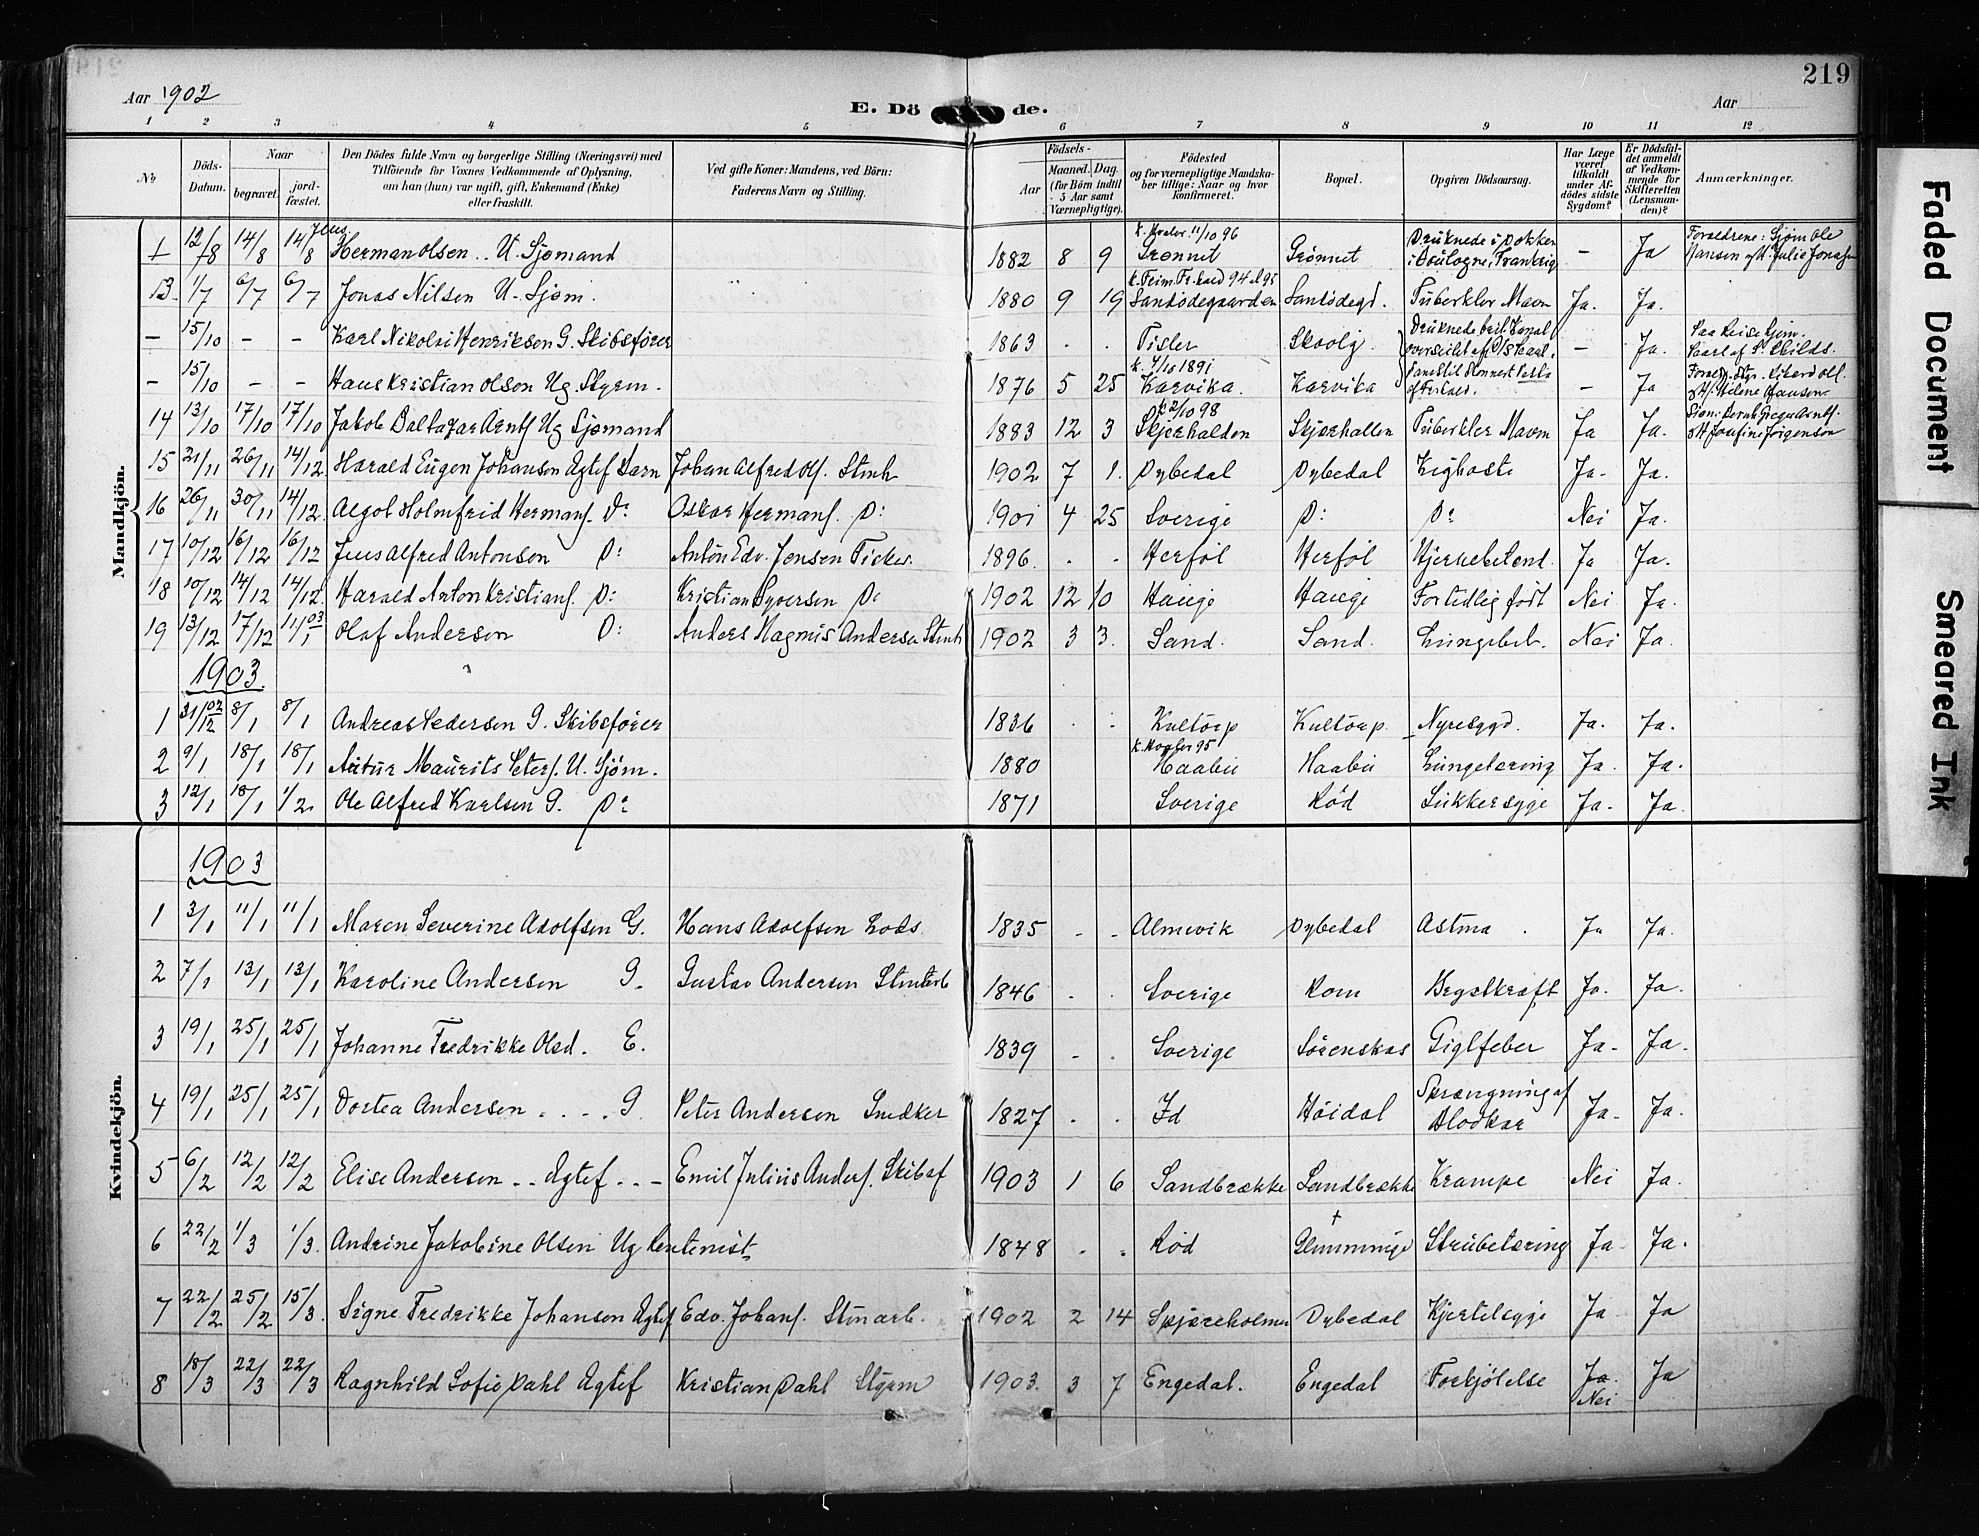 219
Aar 1902
E. Dö de.
Aar
1 2 3 4 5 6 7 8 9 10 11 12
No Döds-Datum. Naar begravet. jord-fæstet. Den Dödes fulde Navn og borgerlige Stilling (Næringsvei) med Tilföiende for Voxnes Vedkommende af Oplysning, om han (hun) var ugift, gift, Enkemand (Enke) eller fraskilt. Ved gifte Koner: Mandens, ved Börn: Faderens Navn og Stilling. Födsels- Aar Maaned. Dag. (for Börn indtil 5 Aar samt Værnepligtige). Födested og for værnepligtige Mandska-ber tillige: Naar og hvor Konfirmeret. Bopæl. Opgiven Dödsaarsag. Har Læge været tilkaldt under Af-dödes sidste Sygdom? Er Dödsfal-det anmeldt af Vedkom-mende for Skifteretten (Lensman-den)? Anmærkninger.
Mandkjön.
12/8 14/8 14/8 Jens Herman Olsen .. U. Sjømand 1882 8 9 k. Hvaler 11/10 96 Grønnet Grønnet Druknede i Dokken i Boulogne, Frankrig - Ja Forældrene: Sjøm Ole Hansen og H. Julie
13. 1/7 6/7 6/7 Jonas Nilsen U. Sjøm. 1880 9 19 Santödegaarden Santödegd. Tuberkler Mavn Ja. Ja.
- 15/10 - - Karl Nikolai Henriksen G. Skibsfører 1863 . . Tisler Skovlg. Druknede - Ja.
- 15/10 - - Hans Kristian Olsen Ug. Styrm. 1876 5 25 k. 4/10 1891 Kasvika. Kasvika - Ja
14 13/10 17/10 17/10 Jakob Baltazar Arntz Ug Sjømand 1883 12 3 k 2/10 98 Skjærhalden Skjærhallen Tuberkler Mavn Ja Ja. og H. Josefine Jørgensen
15 21/11 26/11 14/12. Harald Eugen Johansen Egtef Barn Johan Alfred Olf. Stenh 1902 7 1. Dybedal Dybedal Kighoste Ja- Ja.
16 26/11 30/11 14/12. Holmfrid Hermanf. D: Oskar Hermanf. D: 1901 4 25 Sverige D: D: Nei Ja.
17 10/12 16/12 16/12 Jens Alfred Antonsen D: Anton Edv. Jensen Fisker. 1896 . . Herföl Herföl Hjernebetend. Ja Ja.
18 10/12 14/12 14/12 Harald Anton Kristianf. D: Kristian Syversen D: 1902 12 10 Hauge Hauge For tidlig født Nei Ja.
19 13/12 17/12 11/1 03 Olaf Andersen D: Anders Magnus Andersen Stenh 1902 3 3. Sand. Sand. Lungebet. Nei Ja.
1903.
1 31/12 02 8/1 8/1 Andreas Pedersen G. Skibsfører 1836 . . Kultorp Kultorp Nyresygd. Ja. Ja.
2 9/1 18/1 18/1 Artur Maurits Peterf. U. Sjöm. 1880 k. Hvaler 95 Haabu Haabu Lungetæring Ja. Ja.
3 12/1 18/1 1/2. Ole Alfred Karlsen G. D: 1871 Sverige Röd Sukkersyge Ja. Ja.
Kvindekjön.
1903
1 3/1 11/1 11/1 Maren Severine Adolfsen G. Hans Adolfsen Lods 1835 . . Almevik Dybedal Astma . Ja Ja.
2 7/1 13/1 13/1 Karoline Andersen G. Gustav Andersen Stenarb 1846 . . Sverige Rom Brystkræft Ja. Ja.
3 19/1 25/1 25/1 Johanne Fredrikke Olsd. E. 1839 . . Sverige Sörenskas Gigtfeber Ja- Ja.
4 19/1 25/1 25/1 Dortea Andersen . . . . G. Peter Andersen Snedker 1827 . . Id Höidal Sprængning af Blodkar Ja- Ja.
5 6/2 12/2 12/2 Elise Andersen .. Egtef. . . - Emil Julius Anderf. Skibsf 1903 1 6 Sandbrække Sandbrække Krampe Nei Ja.
6 22/2 1/3 1/3. Andrine Jakobine Olsen Ug Rentenist 1848 . . Röd + Glemminge Strubetæring Ja- Ja.
7 22/2 25/2 15/3. Signe Fredrikke Johansen Egtef Edv. Johanf. Stenarb. 1902 2 14 Skjæreholmen Dybedal Kjertelsyge Ja Ja
8 18/3 22/3 22/3 Ragnhild Sofie Dahl Egtef Kristian Dahl Styrm 1903. 3 7 Engedal. Engedal Forkjölelse Ja. Nei Ja
Faded Document
Smeared Ink